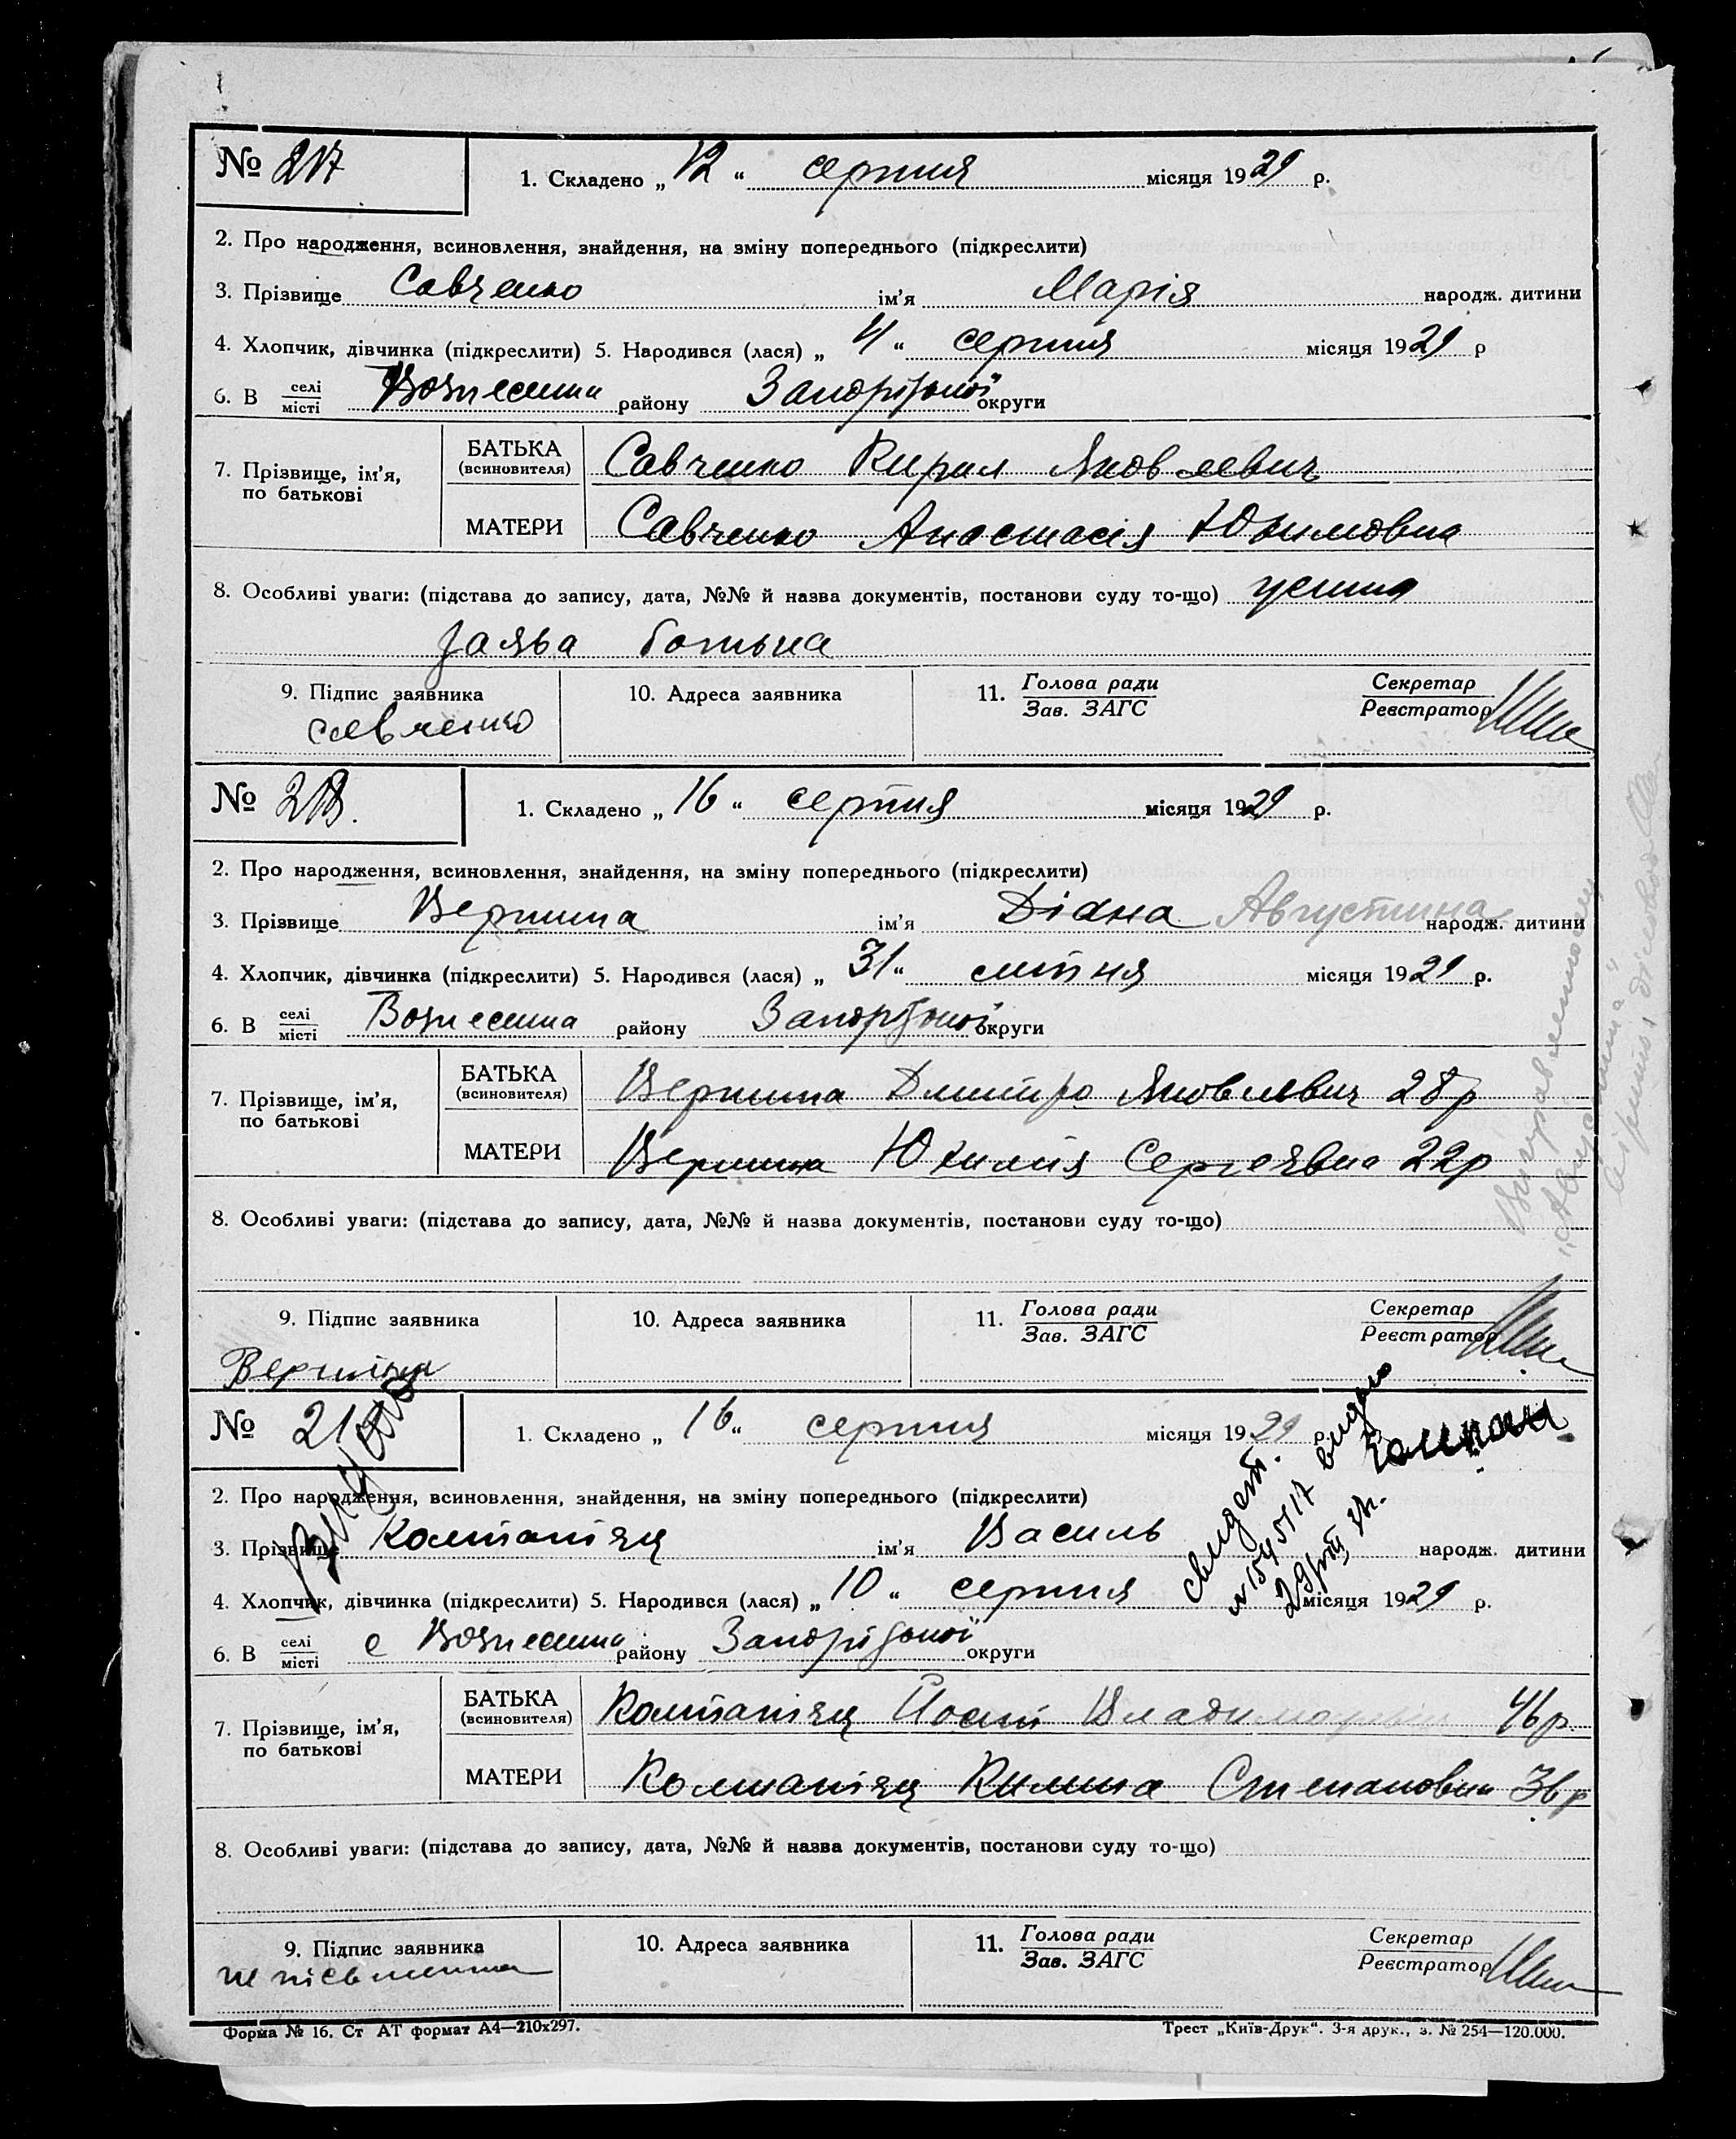 № 217
1. Складено „ 12 “ серпня місяця 1929 р.
2. Про народження, всиновлення, знайдення, на зміну попереднього (підкреслити)
3. Прізвище Савченко ім'я Марія народж. дитини
4. Хлопчик, дівчинка (підкреслити) 5. Народився (лася) „ 4 “ серпня місяця 1929 р
6. В селі/місті Вознесенка району Запорізької округи
7. Прізвище, ім'я, по батькові
БАТЬКА (всиновителя) Савченко Кирил Яковлевич
МАТЕРИ Савченко Анастасія Юхимовна
8. Особливі уваги: (підстава до запису, дата, №№ й назва документів, постанови суду то-що) усина
заява батька
9. Підпис заявника 10. Адреса заявника 11. Голова ради/Зав. ЗАГС Секретар/Реєстратор
савченко
№ 218.
1. Складено „ 16 “ серпня місяця 1929 р.
2. Про народження, всиновлення, знайдення, на зміну попереднього (підкреслити)
3. Прізвище Вершина ім'я Діана Августина народж. дитини
4. Хлопчик, дівчинка (підкреслити) 5. Народився (лася) „ 31 “ липня місяця 1929 р.
6. В селі/місті Вознесенка району Запорізької округи
7. Прізвище, ім'я, по батькові
БАТЬКА (всиновителя) Вершина Дмитро Яковлевич 28 р
МАТЕРИ Вершина Юхимія Сергеявна 22 р
8. Особливі уваги: (підстава до запису, дата, №№ й назва документів, постанови суду то-що)
„Августина“
9. Підпис заявника 10. Адреса заявника 11. Голова ради/Зав. ЗАГС Секретар/Реєстратор
Вершина
№ 219
1. Складено „ 16 “ серпня місяця 1929 р.
2. Про народження, всиновлення, знайдення, на зміну попереднього (підкреслити)
3. Прізвище Компанієц ім'я Василь народж. дитини
4. Хлопчик, дівчинка (підкреслити) 5. Народився (лася) „ 10 “ серпня місяця 1929 р.
6. В селі/місті с Вознесенка району Запорізької округи
7. Прізвище, ім'я, по батькові
БАТЬКА (всиновителя) Компанієц Йосип Владимирович 46 р.
МАТЕРИ Компанієц Килина Степановна 36 р
8. Особливі уваги: (підстава до запису, дата, №№ й назва документів, постанови суду то-що)
9. Підпис заявника 10. Адреса заявника 11. Голова ради/Зав. ЗАГС Секретар/Реєстратор
не письменна
Форма № 16. Ст АТ формат А4—210х297.
Трест „Київ-Друк“. 3-я друк., з. № 254—120.000.